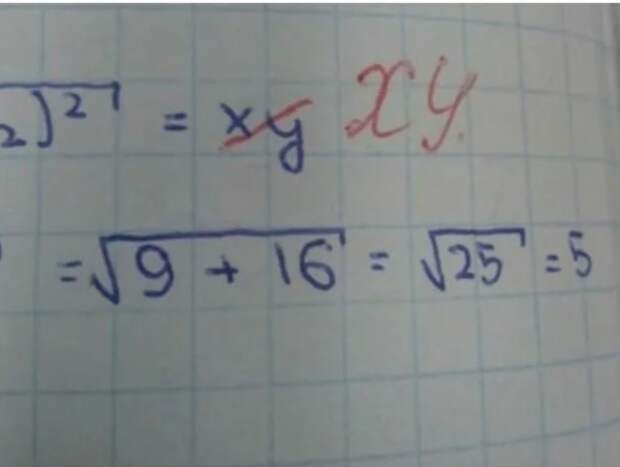 2)² = xy xy
= √9 + 16 = √25 = 5